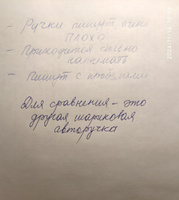 - Ручки пишут очень
плохо
- Приходится сильно
нажимать
- Пишут с пробелами
Для сравнения - это
другая шариковая
авторучка